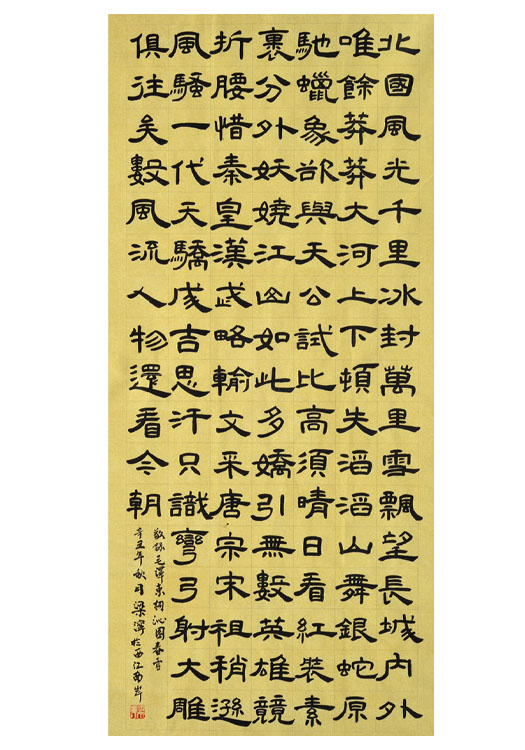 北國風光千里冰封萬里雪飄望長城內外
唯餘莽莽大河上下頓失滔滔山舞銀蛇原
馳蠟象欲與天公試比高須晴日看紅裝素
裹分外妖嬈江山如此多嬌引無數英雄競
折腰惜秦皇漢武略輸文采唐宗宋祖稍遜
風騷一代天驕成吉思汗只識彎弓射大雕
俱往矣數風流人物還看今朝
敬錄毛澤東詞沁園春雪
辛丑年秋月梁於西江南岸